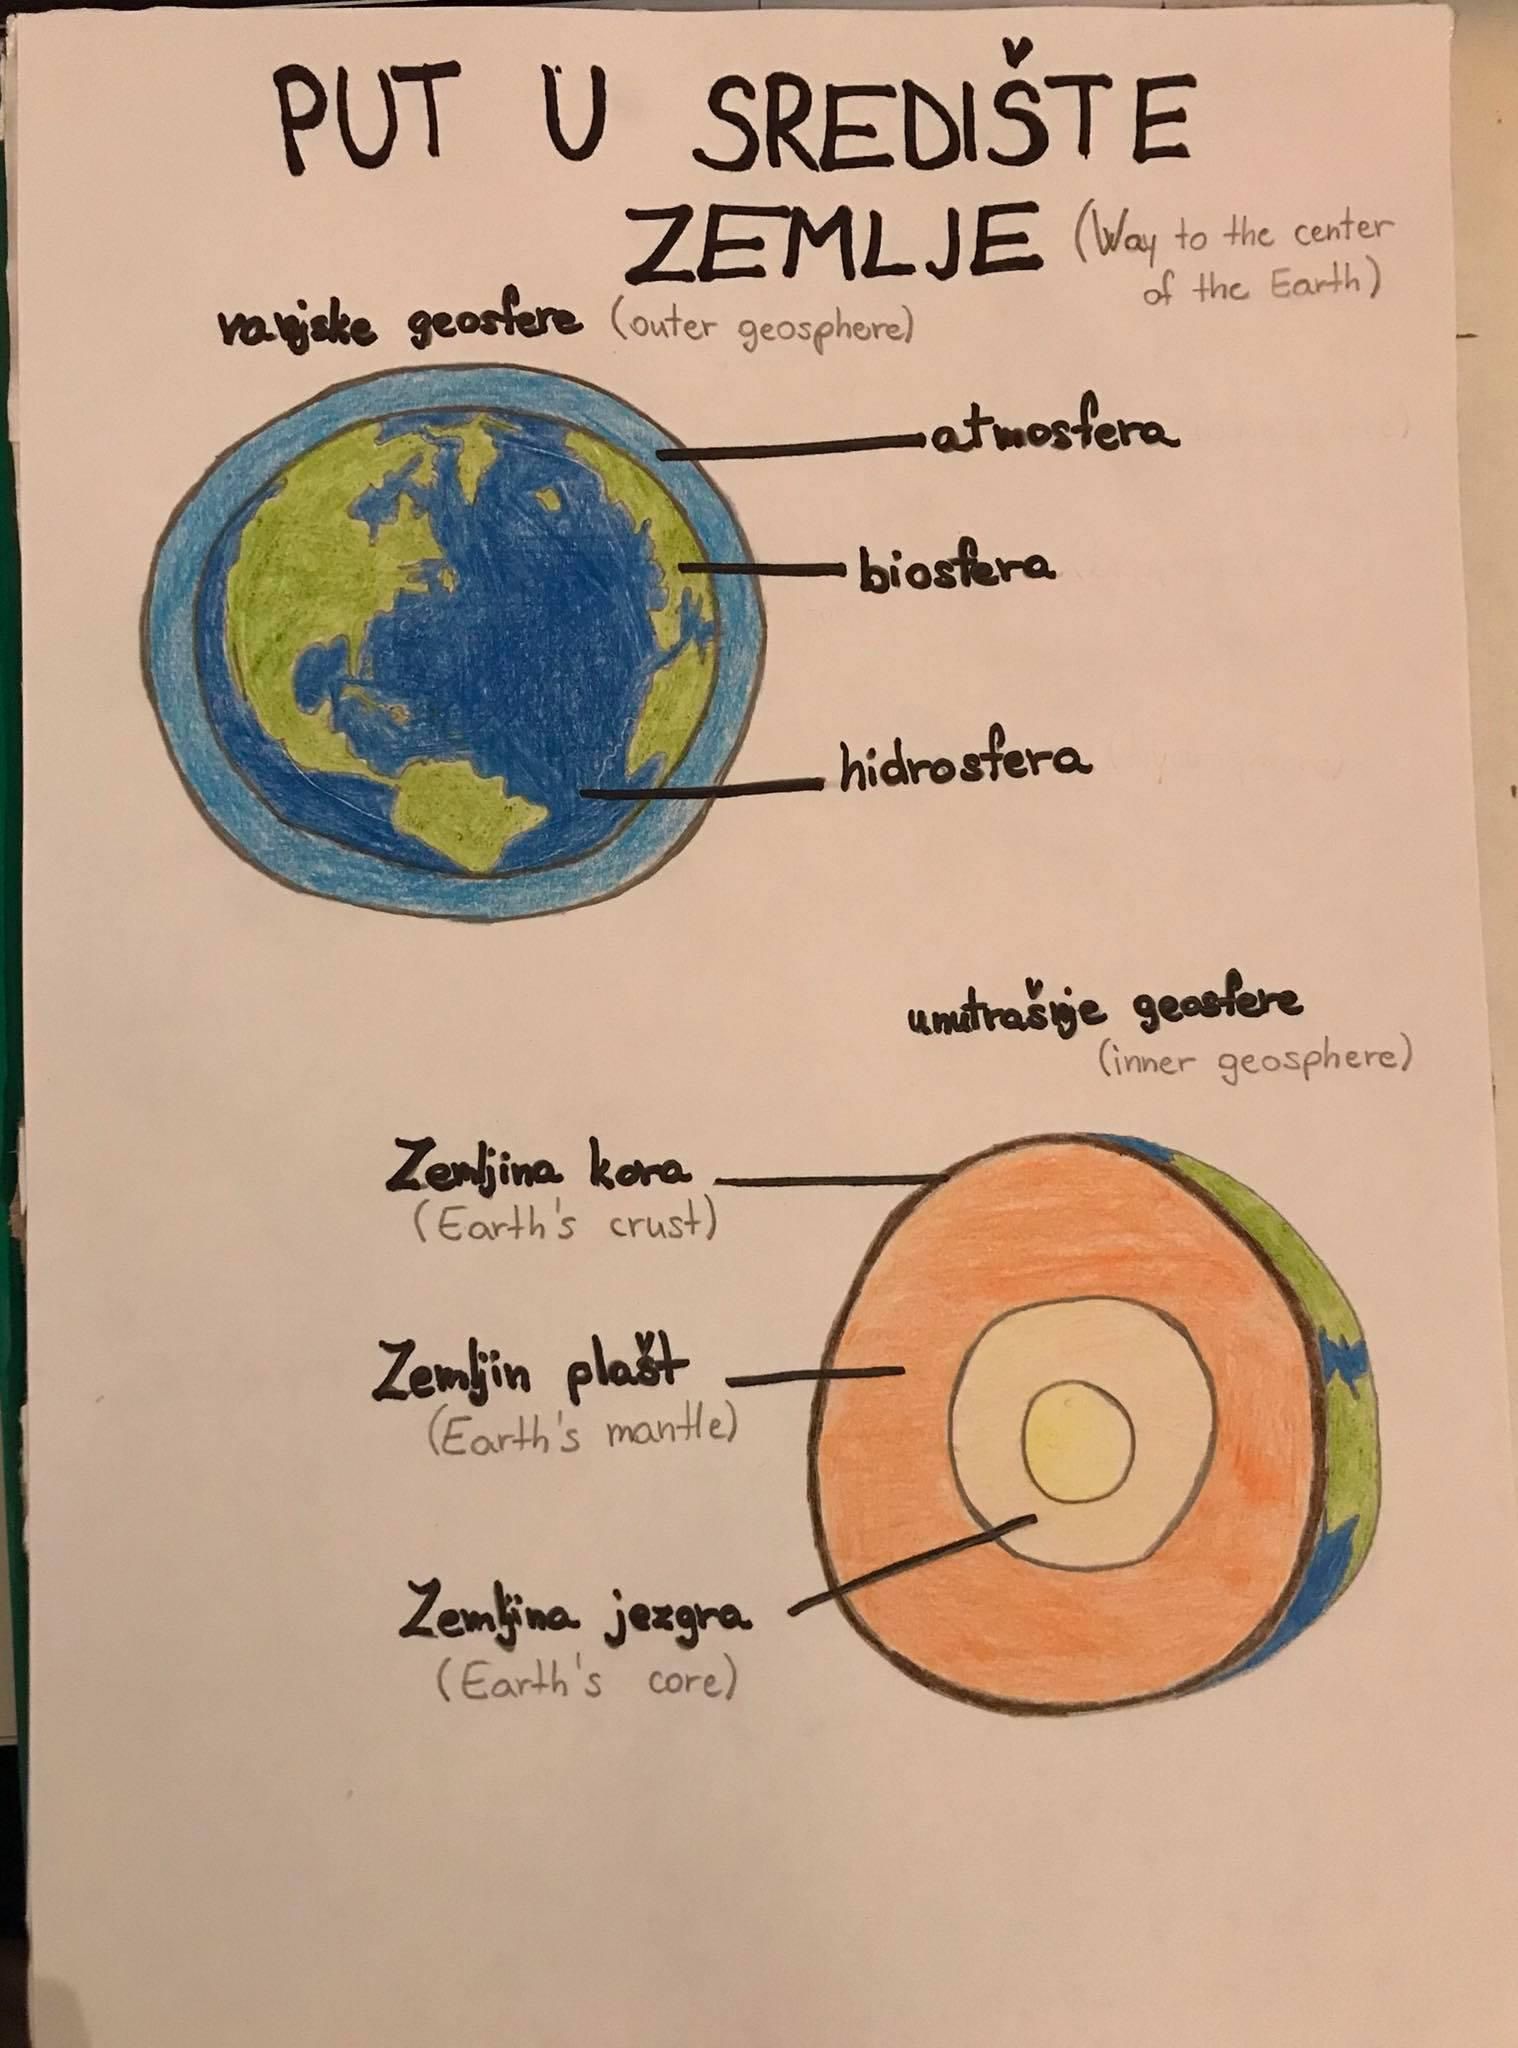 PUT U SREDIŠTE
ZEMLJE (Way to the center
of the Earth)
vanjske geosfere (outer geosphere)
atmosfera
biosfera
hidrosfera
unutrašnje geosfere
(inner geosphere)
Zemljina kora
(Earth's crust)
Zemljin plašt
(Earth's mantle)
Zemljina jezgra
(Earth's core)